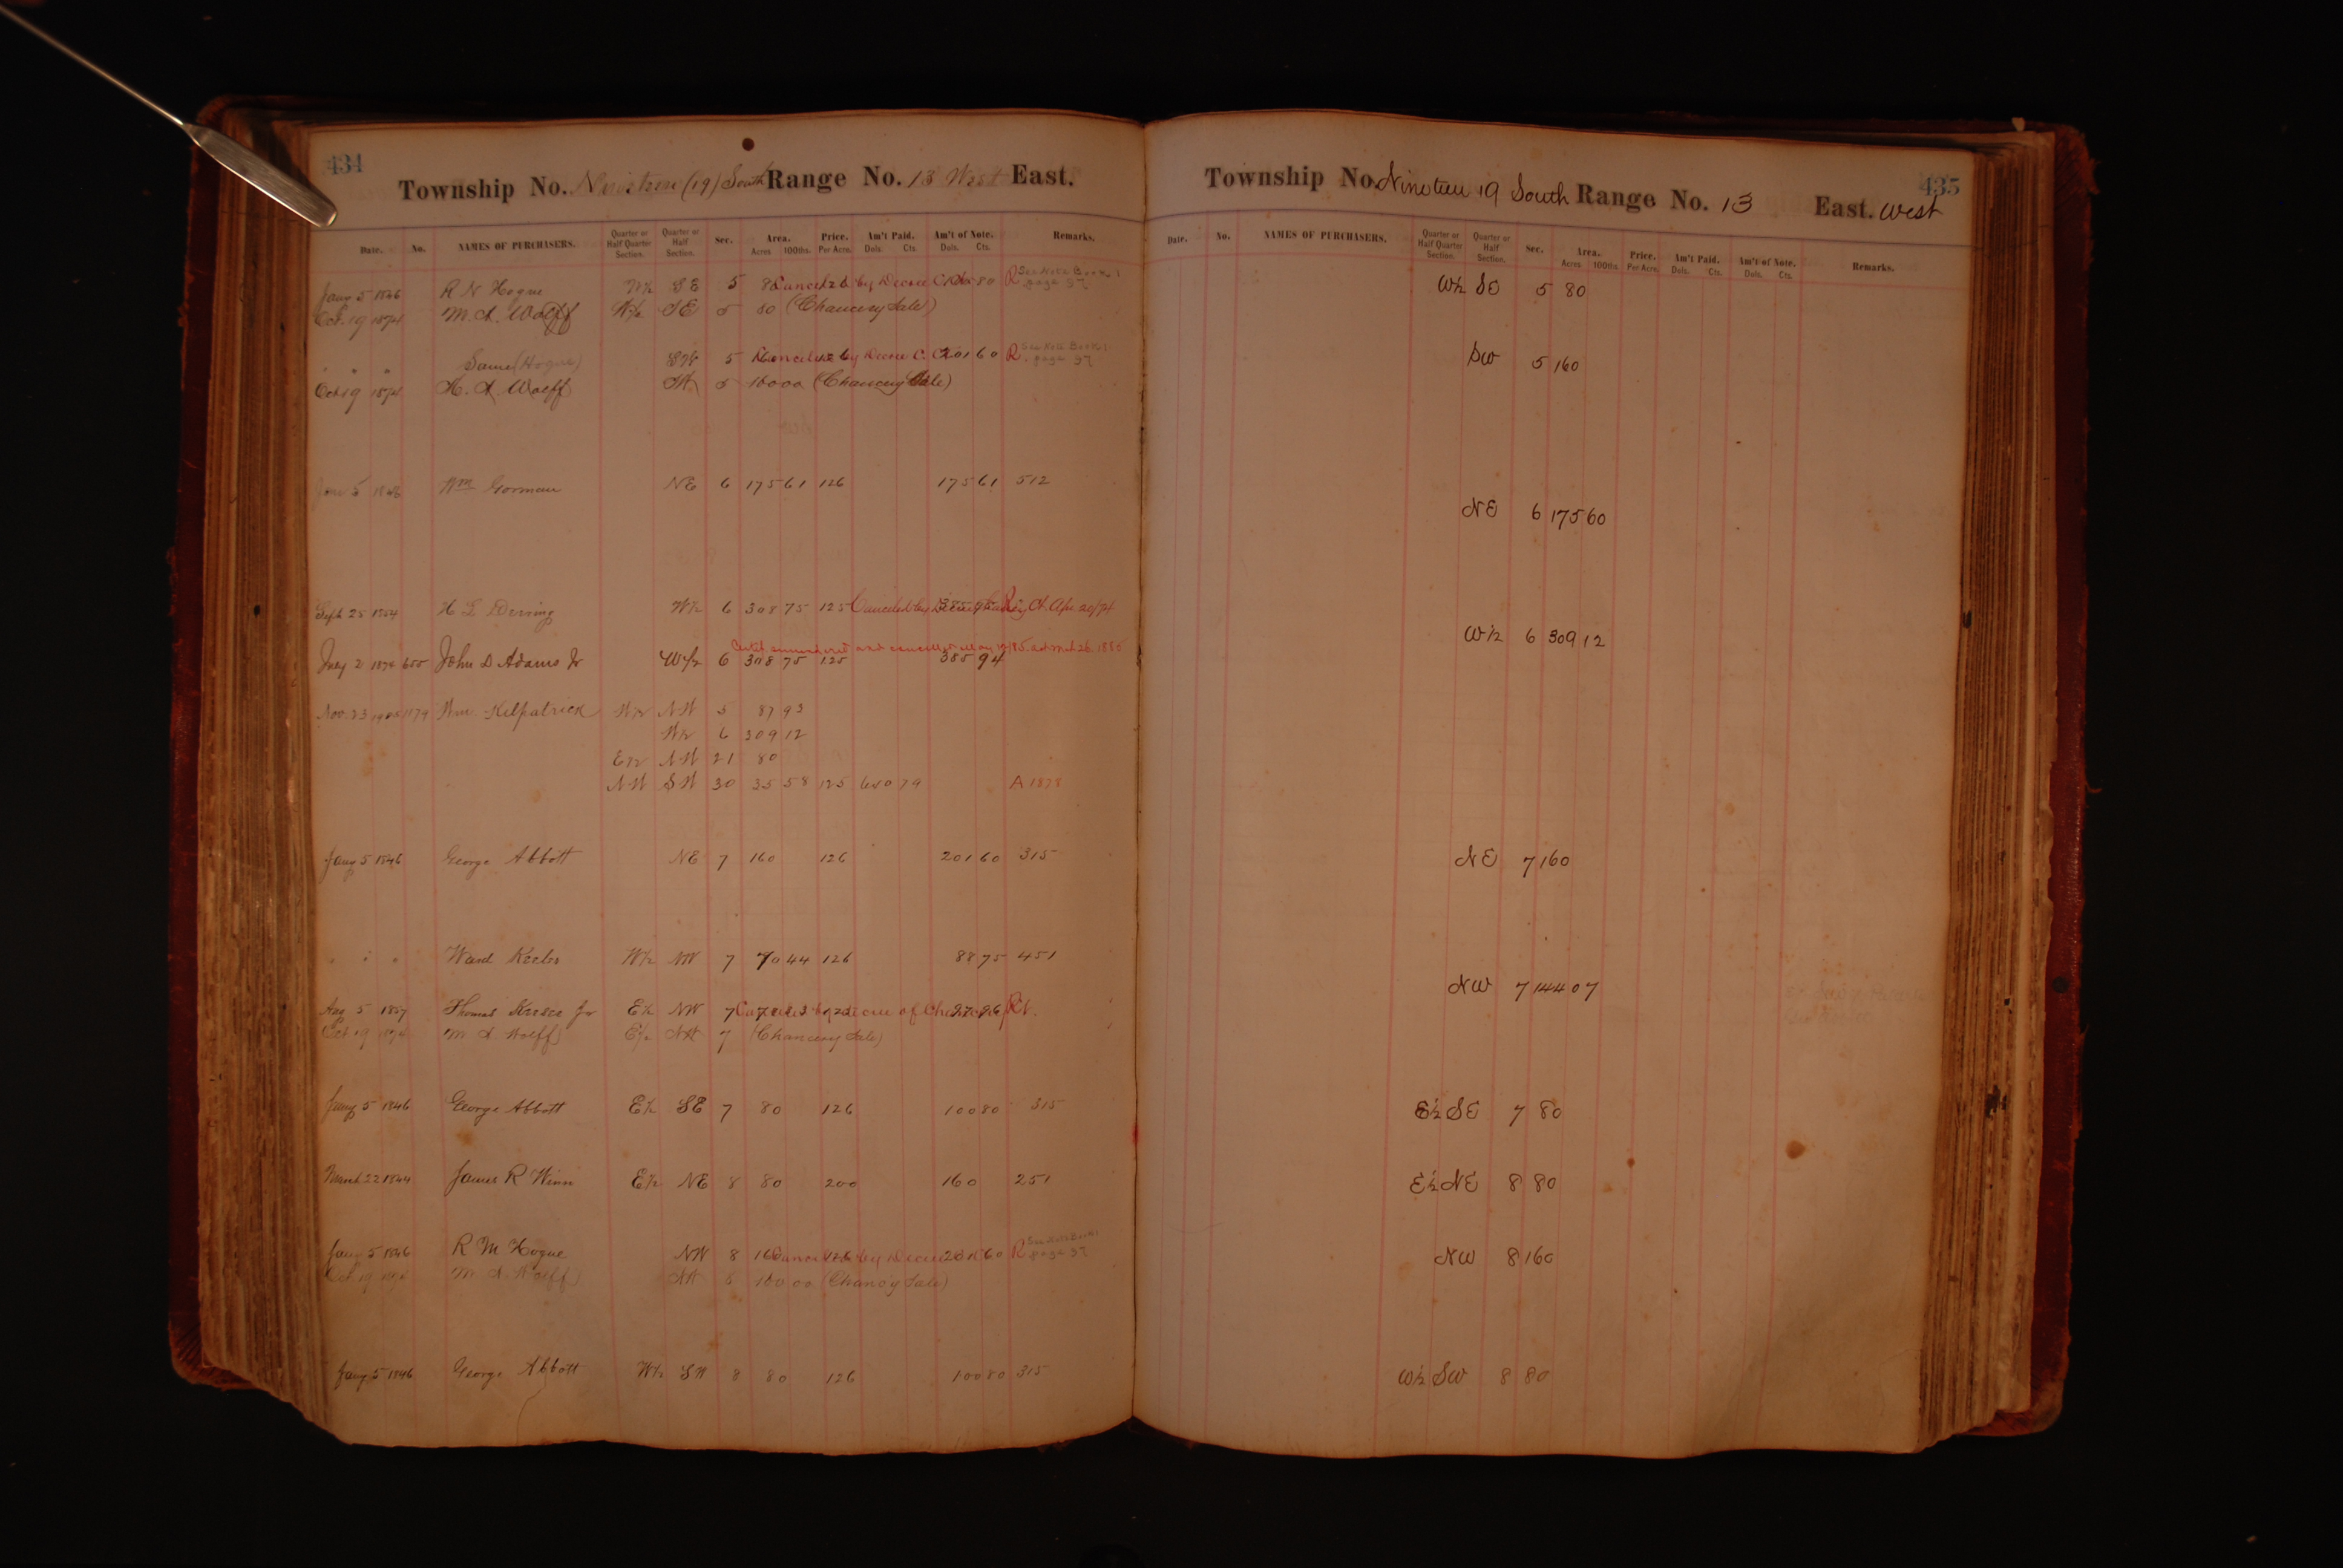 434
Township No. Nineteen (19) South Range No. 13 West East.
Date. No. NAMES OF PURCHASERS. Quarter or Half Quarter Section. Quarter or Half Section. Sec. Area. Acres 100ths. Price. Per Acre. Am't Paid. Dols. Cts. Am't of Note. Dols. Cts. Remarks.
Jany 5 1846 R N Hogue W½ SE 5 80 Canceled by Decree C. Ct. 100 80 R See Note Book 1 page 37
Oct. 19 1874 M. A. Wolff W½ SE 5 80 (Chancery Sale)
" " " Same (Hogue) SW 5 Canceled by Decree C. Ct. 201 60 R See Note Book 1 page 37
Oct 19 1874 M. A. Wolff SW 5 160 00 (Chancery Sale)
Jan 5 1846 Wm Gorman NE 6 175 61 126 175 61 512
Sept 25 1854 H L Derring W½ 6 308 75 125 Canceled by Decree Chancery Ct. Apr. 20/74
July 2 1874 655 John D Adams Jr W½ 6 308 75 125 385 94
Cert surrendered and cancelled May 19/85. act Mch 26 1885
Nov. 23 1905 1179 Wm. Kilpatrick W½ NW 5 87 93
W½ 6 309 12
E½ NW 21 80
NW SW 30 35 58 125 640 79 A 1878
Jany 5 1846 George Abbott NE 7 160 126 201 60 315
" " " Ward Keeler W½ NW 7 70 44 126 88 75 451
Aug 5 1857 Thomas Kersee Jr E½ NW 7 Canceled by decree of Chancery Ct. 97 96
Oct 19 1874 M A Wolff E½ NW 7 (Chancery Sale)
Jany 5 1846 George Abbott E½ SE 7 80 126 100 80 315
March 22 1844 James R Winn E½ NE 8 80 200 160 251
Jany 5 1846 R M Hogue NW 8 160 Canceled by Decree 201 60 R See Note Book 1 page 37
Oct 19 1874 M. A. Wolff NW 8 160 00 (Chancy Sale)
Jany 5 1846 George Abbott W½ SW 8 80 126 100 80 315
435
Township No. Nineteen 19 South Range No. 13 East. West
Date. No. NAMES OF PURCHASERS. Quarter or Half Quarter Section. Quarter or Half Section. Sec. Area. Acres 100ths. Price. Per Acre. Am't Paid. Dols. Cts. Am't of Note. Dols. Cts. Remarks.
W½ SE 5 80
SW 5 160
NE 6 175 60
W½ 6 309 12
NE 7 160
NW 7 144 07
E½ SE 7 80
E½ NE 8 80
NW 8 160
W½ SW 8 80